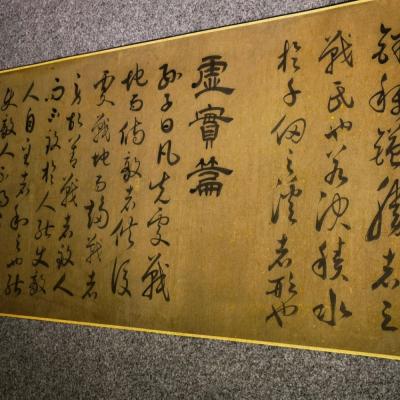 銖稱鎰勝者之
戰民也若決積水
於千仞之溪者形也
虛實篇
孫子曰凡先處戰
地而待敵者佚後
處戰地而趨戰者
勞故善戰者致人
而不致於人能使敵
人自至者利之也能
使敵人不得